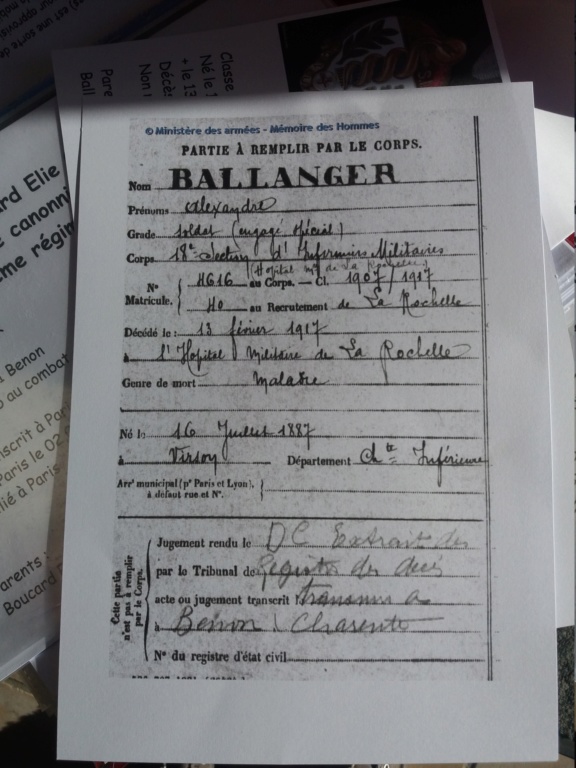 Classe
Né le 1
+ le 13
Décès
Non
Pare
Ball
ard Elie
e canonni
ème régim
Benon
au combat
nscrit à Par
Paris le 02
lié à Paris
arents :
Boucard
© Ministère des armées - Mémoire des Hommes
PARTIE À REMPLIR PAR LE CORPS.
Nom BALLANGER
Prénoms Alexandre
Grade Soldat (engagé spécial)
Corps 18e Section d'Infirmiers Militaires
(Hôpital mre de La Rochelle)
N° 4616 au Corps. — Cl. 1907/1917
Matricule. 40 au Recrutement de La Rochelle
Décédé le : 13 février 1917
à l'Hôpital Militaire de La Rochelle
Genre de mort Maladie
Né le 16 Juillet 1887
à Virson Département Chte Inférieure
Arrt municipal (pr Paris et Lyon),
à défaut rue et N°.
Cette partie
n'est pas à remplir
par le Corps.
Jugement rendu le DC Extrait des
par le Tribunal de Registres des décès
acte ou jugement transcrit transmis à
à Benon Charente
N° du registre d'état civil